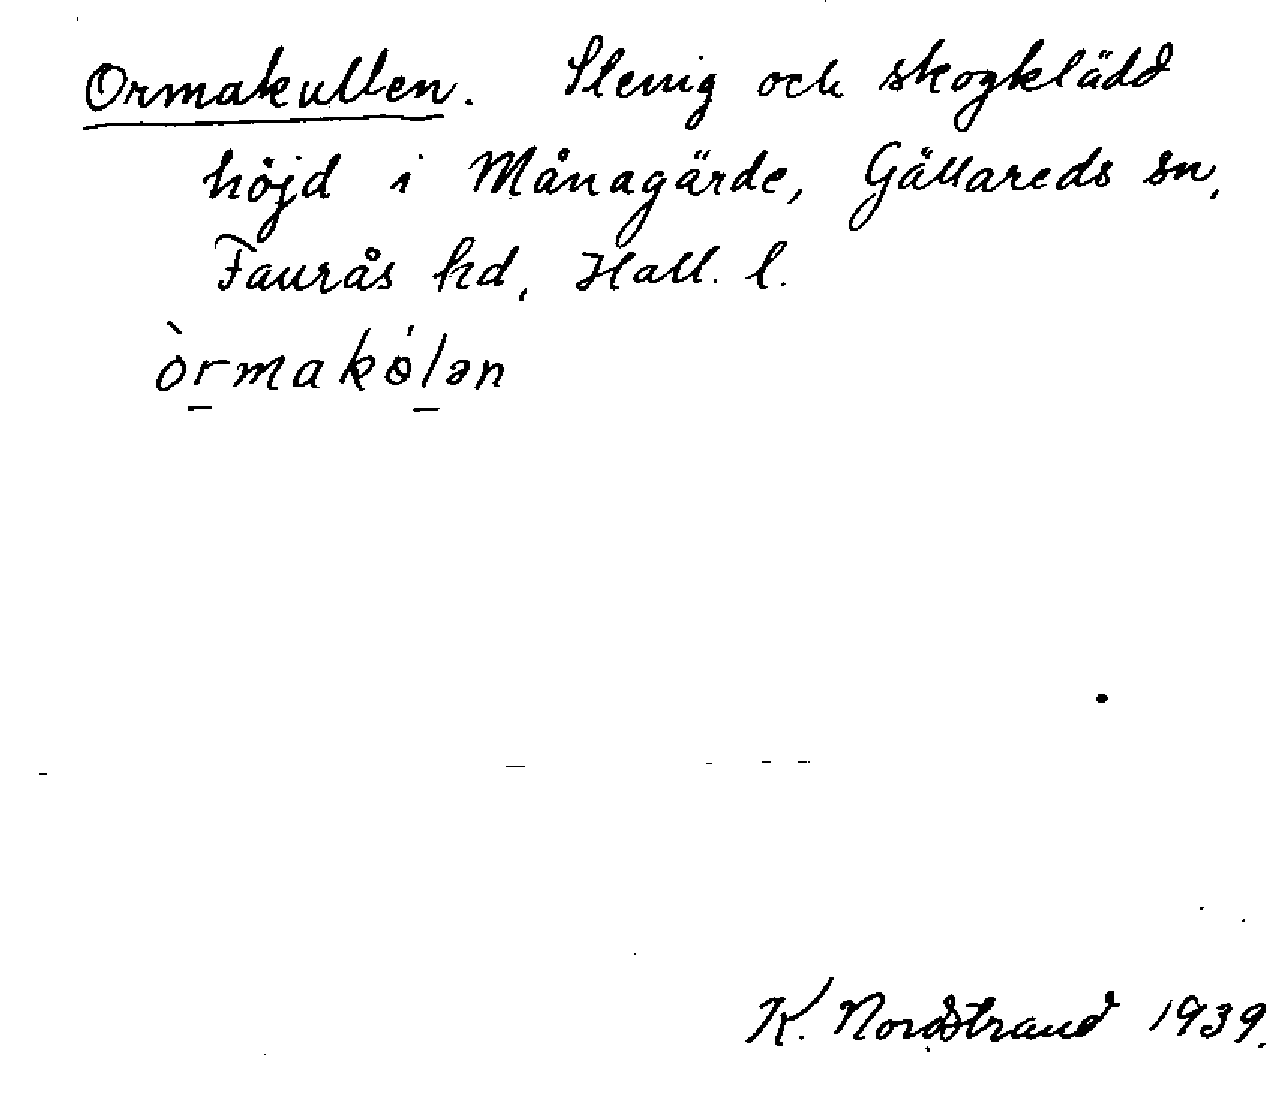 Ormakullen. Stenig och skogklädd
höjd i Månagärde, Gällareds sn,
Faurås hd, Hall. l.
òr̠makɵ́l̠ən
K. Nordstrand 1939.